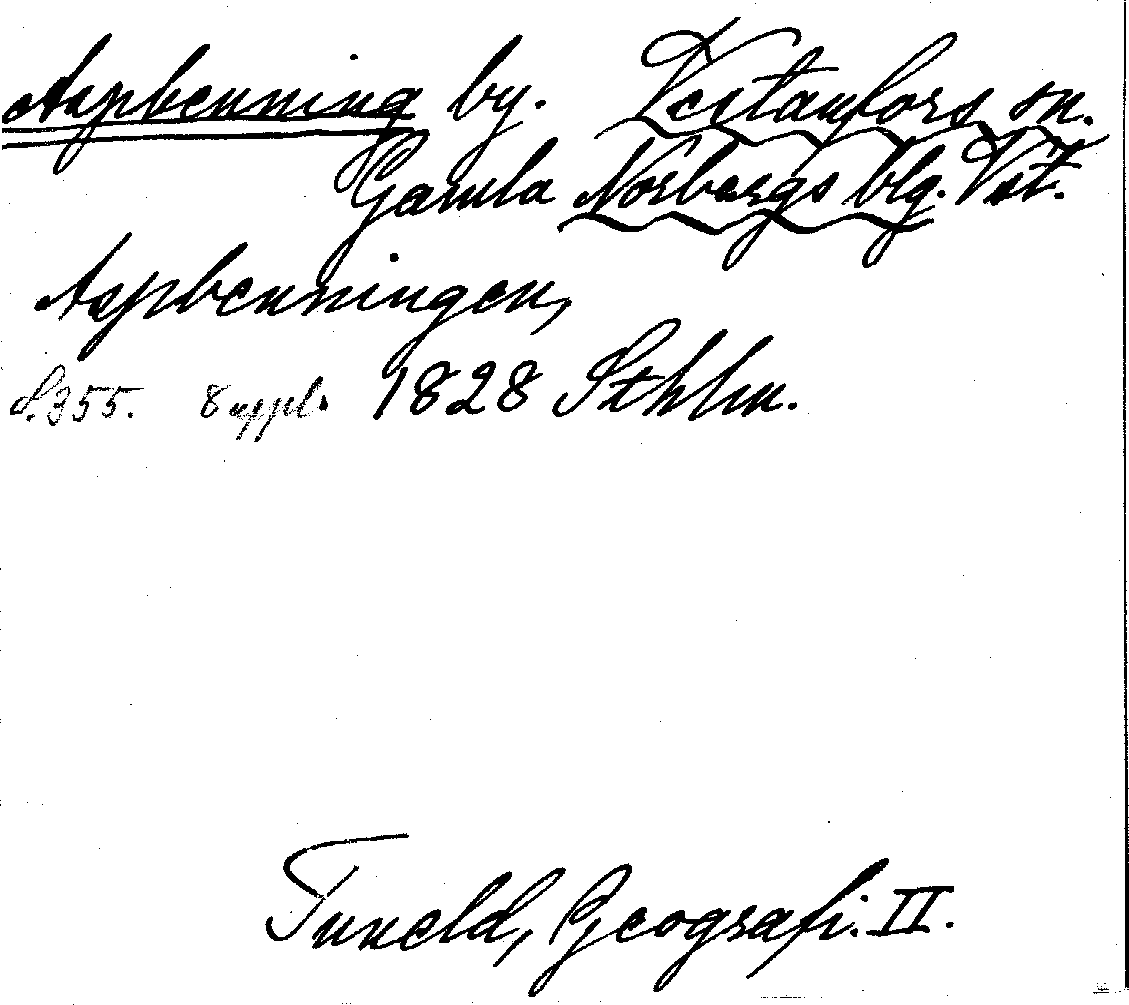 Aspbenning by. Vestanfors sn.
Gamla Norbergs blg. Vst.
Aspbenningen,
S. 355. 8 uppl. 1828 Sthlm.
Tuneld, Geografi. II.